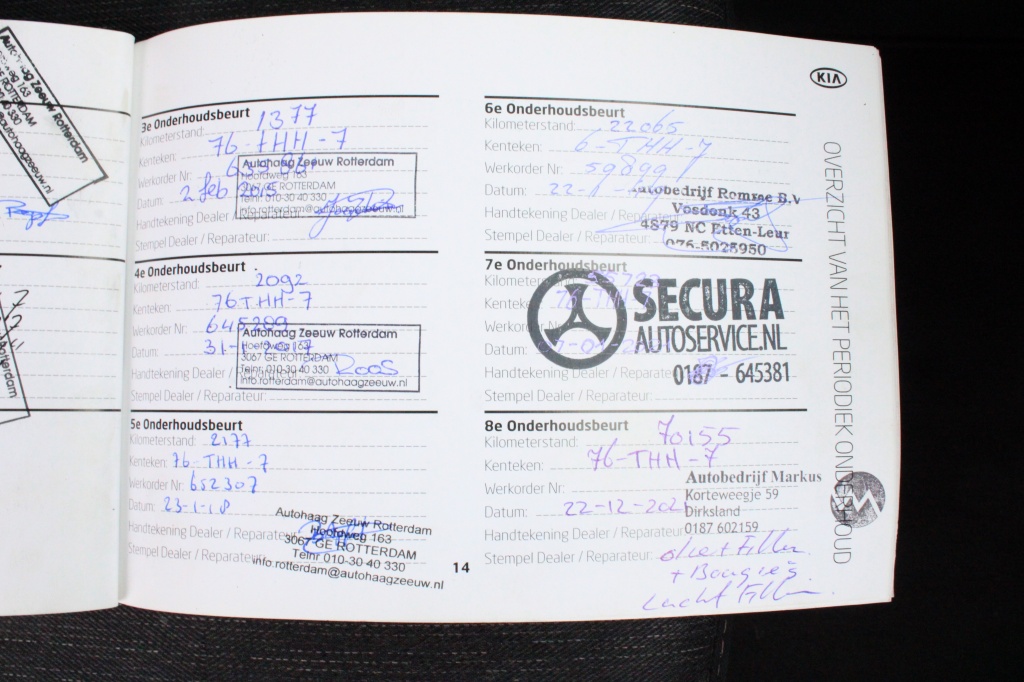 Autohaag Zeeuw Rotterdam
weg 163
ROTTERDAM
40 330
autohaagzeeuw.nl
3e Onderhoudsbeurt
Kilometerstand: 1377
Kenteken: 76-THH-7
Werkorder Nr:
Datum: 2 feb
Handtekening Dealer / Reparateur:
Stempel Dealer / Reparateur:
Autohaag Zeeuw Rotterdam
Hoofdweg 163
3067 GE ROTTERDAM
Telnr 010-30 40 330
info.rotterdam@autohaagzeeuw.nl
4e Onderhoudsbeurt
Kilometerstand: 2092
Kenteken: 76-THH-7
Werkorder Nr: 645289
Datum: 31-1-2017
Handtekening Dealer / Reparateur:
Stempel Dealer / Reparateur:
Autohaag Zeeuw Rotterdam
Hoofdweg 163
3067 GE ROTTERDAM
Telnr 010-30 40 330
info.rotterdam@autohaagzeeuw.nl
Roos
5e Onderhoudsbeurt
Kilometerstand: 2177
Kenteken: 76-THH-7
Werkorder Nr: 652307
Datum: 23-1-18
Handtekening Dealer / Reparateur:
Stempel Dealer / Reparateur:
Autohaag Zeeuw Rotterdam
Hoofdweg 163
3067 GE ROTTERDAM
Telnr 010-30 40 330
info.rotterdam@autohaagzeeuw.nl
14
KIA
6e Onderhoudsbeurt
Kilometerstand: 22065
Kenteken: 6-THH-7
Werkorder Nr: 59899
Datum:
Handtekening Dealer / Reparateur:
Stempel Dealer / Reparateur:
Autobedrijf Romsee B.V
Vosdonk 43
4879 NC Etten-Leur
076-5025950
7e Onderhoudsbeurt
Kilometerstand:
Kenteken:
Werkorder Nr:
Datum:
Handtekening Dealer / Reparateur:
Stempel Dealer / Reparateur:
SECURA
AUTOSERVICE.NL
0187 - 645381
8e Onderhoudsbeurt
Kilometerstand: 70155
Kenteken: 76-THH-7
Werkorder Nr:
Datum: 22-12-2021
Handtekening Dealer / Reparateur:
Stempel Dealer / Reparateur:
Autobedrijf Markus
Korteweegje 59
Dirksland
0187 602159
olie + Filter
+ Bougie's
Lucht Filter
OVERZICHT VAN HET PERIODIEK ONDERHOUD